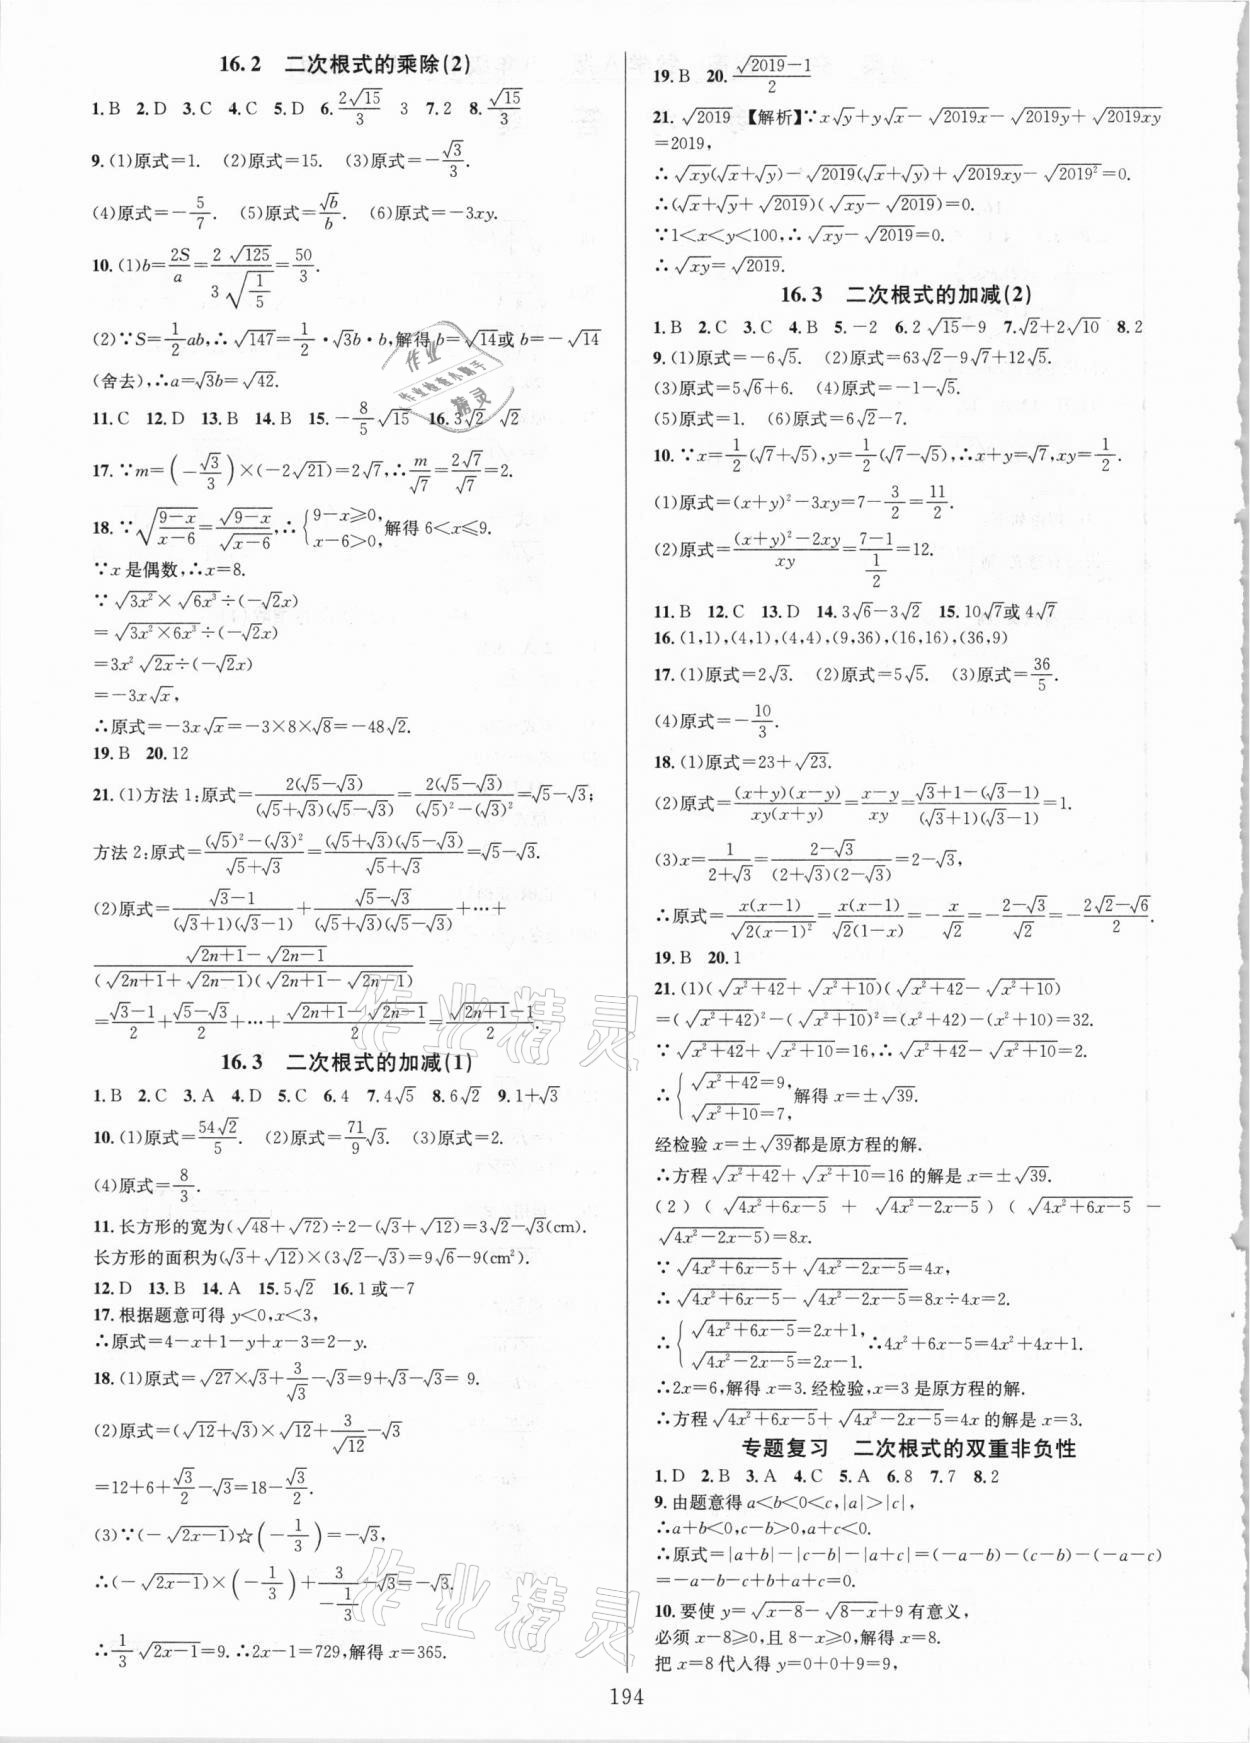 16.2 二次根式的乘除(2)
1.B 2.D 3.C 4.C 5.D 6.2√15/3 3 7.2 8.√15/3
9.(1)原式=1. (2)原式=15. (3)原式=-√3/3.
(4)原式=-5/7. (5)原式=√b/b. (6)原式=-3xy.
10.(1)b=2S/a=2√125/(3√(1/5))=50/3.
(2)∵S=1/2ab,∴√147=1/2·√3b·b,解得b=√14或b=-√14
(舍去),∴a=√3b=√42.
11.C 12.D 13.B 14.B 15.-8/5√15 16.3√2 √2
17.∵m=(-√3/3)×(-2√21)=2√7,∴m/√7=2√7/√7=2.
18.∵√((9-x)/(x-6))=√(9-x)/√(x-6),∴{9-x≥0, x-6>0,解得6<x≤9.
∵x是偶数,∴x=8.
∵√(3x²)×√(6x³)÷(-√2x)
=√(3x²×6x³)÷(-√2x)
=3x²√(2x)÷(-√2x)
=-3x√x,
∴原式=-3x√x=-3×8×√8=-48√2.
19.B 20.12
21.(1)方法1:原式=2(√5-√3)/((√5+√3)(√5-√3))=2(√5-√3)/((√5)²-(√3)²)=√5-√3;
方法2:原式=((√5)²-(√3)²)/(√5+√3)=(√5+√3)(√5-√3)/(√5+√3)=√5-√3.
(2)原式=(√3-1)/((√3+1)(√3-1))+(√5-√3)/((√5+√3)(√5-√3))+…+
(√(2n+1)-√(2n-1))/((√(2n+1)+√(2n-1))(√(2n+1)-√(2n-1)))
=(√3-1)/2+(√5-√3)/2+…+(√(2n+1)-√(2n-1))/2=(√(2n+1)-1)/2.
16.3 二次根式的加减(1)
1.B 2.C 3.A 4.D 5.C 6.4 7.4√5 8.6√2 9.1+√3
10.(1)原式=54√2/5. (2)原式=71/9√3. (3)原式=2.
(4)原式=8/3.
11.长方形的宽为(√48+√72)÷2-(√3+√12)=3√2-√3(cm).
长方形的面积为(√3+√12)×(3√2-√3)=9√6-9(cm²).
12.D 13.B 14.A 15.5√2 16.1或-7
17.根据题意可得y<0,x<3,
∴原式=4-x+1-y+x-3=2-y.
18.(1)原式=√27×√3+3/√3-√3=9+√3-√3=9.
(2)原式=(√12+√3)×√12+3/√12-√3
=12+6+√3/2-√3=18-√3/2.
(3)∵(-√(2x-1))☆(-1/3)=-√3,
∴(-√(2x-1))×(-1/3)+3/(-1/3)-√3=-√3.
∴1/3√(2x-1)=9.∴2x-1=729,解得x=365.
19.B 20.(√2019-1)/2
21.√2019 【解析】∵x√y+y√x-√(2019x)-√(2019y)+√(2019xy)
=2019,
∴√(xy)(√x+√y)-√2019(√x+√y)+√(2019xy)-√(2019²)=0.
∴(√x+√y+√2019)(√(xy)-√2019)=0.
∵1<x<y<100,∴√(xy)-√2019=0.
∴√(xy)=√2019.
16.3 二次根式的加减(2)
1.B 2.C 3.C 4.B 5.-2 6.2√15-9 7.√2+2√10 8.2
9.(1)原式=-6√5. (2)原式=63√2-9√7+12√5.
(3)原式=5√6+6. (4)原式=-1-√5.
(5)原式=1. (6)原式=6√2-7.
10.∵x=1/2(√7+√5),y=1/2(√7-√5),∴x+y=√7,xy=1/2.
(1)原式=(x+y)²-3xy=7-3/2=11/2.
(2)原式=((x+y)²-2xy)/xy=(7-1)/(1/2)=12.
11.B 12.C 13.D 14.3√6-3√2 15.10√7或4√7
16.(1,1),(4,1),(4,4),(9,36),(16,16),(36,9)
17.(1)原式=2√3. (2)原式=5√5. (3)原式=36/5.
(4)原式=-10/3.
18.(1)原式=23+√23.
(2)原式=(x+y)(x-y)/(xy(x+y))=(x-y)/xy=(√3+1-(√3-1))/((√3+1)(√3-1))=1.
(3)x=1/(2+√3)=(2-√3)/((2+√3)(2-√3))=2-√3,
∴原式=x(x-1)/√(2(x-1)²)=x(x-1)/(√2(1-x))=-x/√2=-(2-√3)/√2=-(2√2-√6)/2.
19.B 20.1
21.(1)(√(x²+42)+√(x²+10))(√(x²+42)-√(x²+10))
=(√(x²+42))²-(√(x²+10))²=(x²+42)-(x²+10)=32.
∵√(x²+42)+√(x²+10)=16,∴√(x²+42)-√(x²+10)=2.
∴{√(x²+42)=9, √(x²+10)=7,解得x=±√39.
经检验x=±√39都是原方程的解.
∴方程√(x²+42)+√(x²+10)=16的解是x=±√39.
(2)(√(4x²+6x-5)+√(4x²-2x-5))(√(4x²+6x-5)-
√(4x²-2x-5))=8x.
∵√(4x²+6x-5)+√(4x²-2x-5)=4x,
∴√(4x²+6x-5)-√(4x²-2x-5)=8x÷4x=2.
∴{√(4x²+6x-5)=2x+1, √(4x²-2x-5)=2x-1.∴4x²+6x-5=4x²+4x+1.
∴2x=6,解得x=3.经检验,x=3是原方程的解.
∴方程√(4x²+6x-5)+√(4x²-2x-5)=4x的解是x=3.
专题复习 二次根式的双重非负性
1.D 2.B 3.A 4.C 5.A 6.8 7.7 8.2
9.由题意得a<b<0<c,|a|>|c|,
∴a+b<0,c-b>0,a+c<0.
∴原式=|a+b|-|c-b|-|a+c|=(-a-b)-(c-b)-(-a-c)
=-a-b-c+b+a+c=0.
10.要使y=√(x-8)-√(8-x)+9有意义,
必须x-8≥0,且8-x≥0,解得x=8.
把x=8代入得y=0+0+9=9,
194
作业精灵
作业精灵
作业
作业检查小助手
精灵